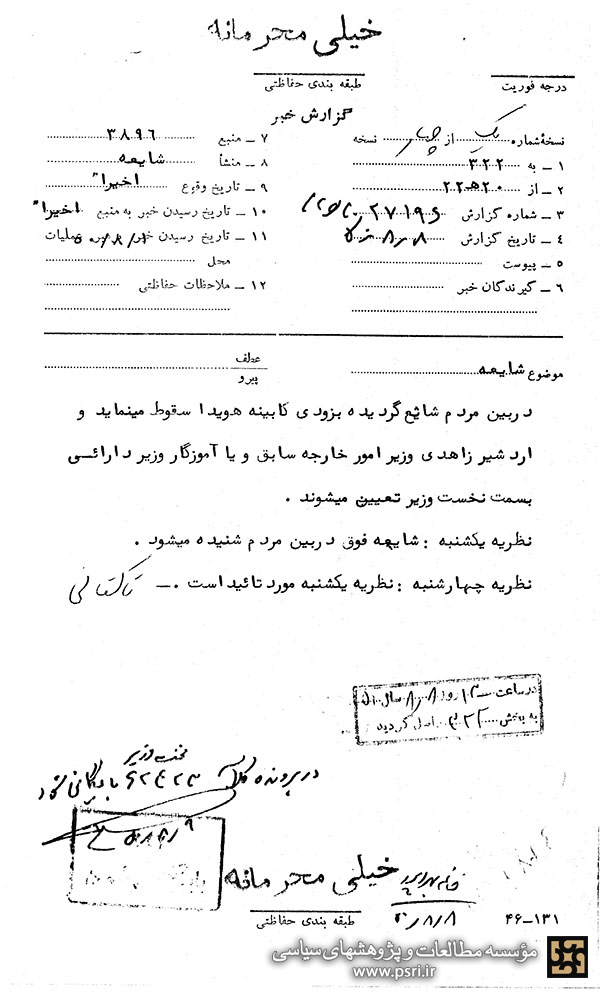 خیلی محرمانه
طبقه بندی حفاظتی
درجه فوریت
گزارش خبر
نسخهٔ شماره یک از چهار نسخه
۱ ــ به ۳۲۲
۲ ــ از ۲۰ ه ۲۲
۳ ــ شماره گزارش ۲۷۱۹۶
۴ ــ تاریخ گزارش ۸ر۸ر
۵ ــ پیوست
۶ ــ گیرندگان خبر
۷ ــ منبع ۳۸۹۶
۸ ــ منشأ شایعه
۹ ــ تاریخ وقوع اخیراً
۱۰ ــ تاریخ رسیدن خبر به منبع اخیراً
۱۱ ــ تاریخ رسیدن خبر عملیات
محل
۱۲ ــ ملاحظات حفاظتی
موضوع شایعه
عطف
پیرو
دربین مردم شایع گردیده بزودی کابینه هویدا سقوط مینماید و
اردشیر زاهدی وزیر امور خارجه سابق و یا آموزگار وزیر دارائی
بسمت نخست وزیر تعیین میشوند .
نظریه یکشنبه : شایعه فوق دربین مردم شنیده میشود .
نظریه چهارشنبه : نظریه یکشنبه مورد تائید است .ــ
در ساعت ۱۳ روز ۸ر۸ سال
به بخش ۳۲۲ واصل گردید
نخست وزیر
در پرونده کلاسه ۶۲۴۲۳ بایگانی شود
خیلی محرمانه
طبقه بندی حفاظتی
۴۶-۱۳۱
مؤسسه مطالعات و پژوهشهای سیاسی
www.psri.ir